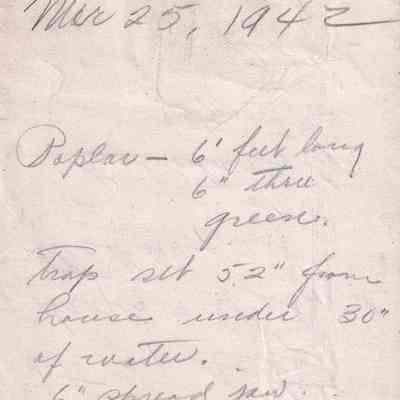 Mar 25, 1942
Poplar — 6' feet long
6" thru
green.
Trap set 52" from
house under 30"
of water.
6" spread jaw.